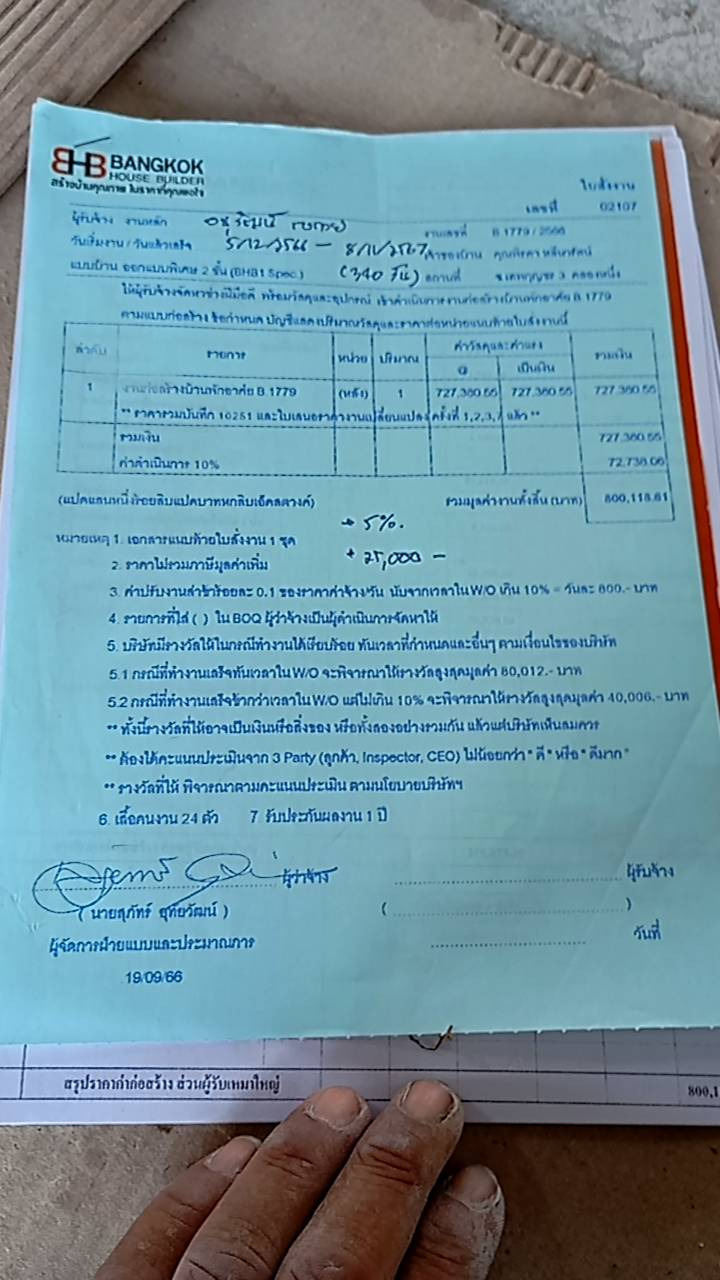 BHB BANGKOK
HOUSE BUILDER
สร้างบ้านคุณภาพ ในราคาที่คุณพอใจ
ใบสั่งงาน
เลขที่ 02107
ผู้รับจ้าง งานหลัก
งานเลขที่ B.1779 / 2566
วันเริ่มงาน / วันแล้วเสร็จ
เจ้าของบ้าน
แบบบ้าน ออกแบบพิเศษ 2 ชั้น (BHB1 Spec.) (340 วัน) สถานที่
ให้ผู้รับจ้างจัดหาช่างฝีมือดี พร้อมวัสดุและอุปกรณ์ เข้าดำเนินการงานก่อสร้างบ้านพักอาศัย B.1779
ตามแบบก่อสร้าง ข้อกำหนด บัญชีแสดงปริมาณวัสดุและราคาต่อหน่วยแนบท้ายใบสั่งงานนี้
ลำดับ รายการ หน่วย ปริมาณ ค่าวัสดุและค่าแรง รวมเงิน
@ เป็นเงิน
1 งานก่อสร้างบ้านพักอาศัย B.1779 (หลัง) 1 727,380.55 727,380.55 727,380.55
** ราคารวมบันทึก 10251 และใบเสนอราคางานเปลี่ยนแปลงครั้งที่ 1,2,3, แล้ว **
รวมเงิน 727,380.55
ค่าดำเนินการ 10% 72,738.06
(แปดแสนหนึ่งร้อยสิบแปดบาทหกสิบเอ็ดสตางค์) รวมมูลค่างานทั้งสิ้น (บาท) 800,118.61
+ 5%.
+ 25,000 -
หมายเหตุ 1. เอกสารแนบท้ายใบสั่งงาน 1 ชุด
2. ราคาไม่รวมภาษีมูลค่าเพิ่ม
3. ค่าปรับงานล่าช้าร้อยละ 0.1 ของราคาค่าจ้าง/วัน นับจากเวลาใน W/O เกิน 10% = วันละ 800.- บาท
4. รายการที่ใส่ ( ) ใน BOQ ผู้ว่าจ้างเป็นผู้ดำเนินการจัดหาให้
5. บริษัทมีรางวัลให้ในกรณีทำงานได้เรียบร้อย ทันเวลาที่กำหนดและอื่นๆ ตามเงื่อนไขของบริษัท
5.1 กรณีที่ทำงานเสร็จทันเวลาใน W/O จะพิจารณาให้รางวัลสูงสุดมูลค่า 80,012.- บาท
5.2 กรณีที่ทำงานเสร็จช้ากว่าเวลาใน W/O แต่ไม่เกิน 10% จะพิจารณาให้รางวัลสูงสุดมูลค่า 40,006.- บาท
** ทั้งนี้รางวัลที่ให้อาจเป็นเงินหรือสิ่งของ หรือทั้งสองอย่างรวมกัน แล้วแต่บริษัทเห็นสมควร
** ต้องได้คะแนนประเมินจาก 3 Party (ลูกค้า, Inspector, CEO) ไม่น้อยกว่า " ดี " หรือ " ดีมาก "
** รางวัลที่ให้ พิจารณาตามคะแนนประเมิน ตามนโยบายบริษัทฯ
6. เสื้อคนงาน 24 ตัว 7 รับประกันผลงาน 1 ปี
ผู้ว่าจ้าง ผู้รับจ้าง
( นายสุภัทร์ อุทัยวัฒน์ ) ( )
ผู้จัดการฝ่ายแบบและประมาณการ วันที่
19/09/66
สรุปราคาค่าก่อสร้าง ส่วนผู้รับเหมาใหญ่ 800,1